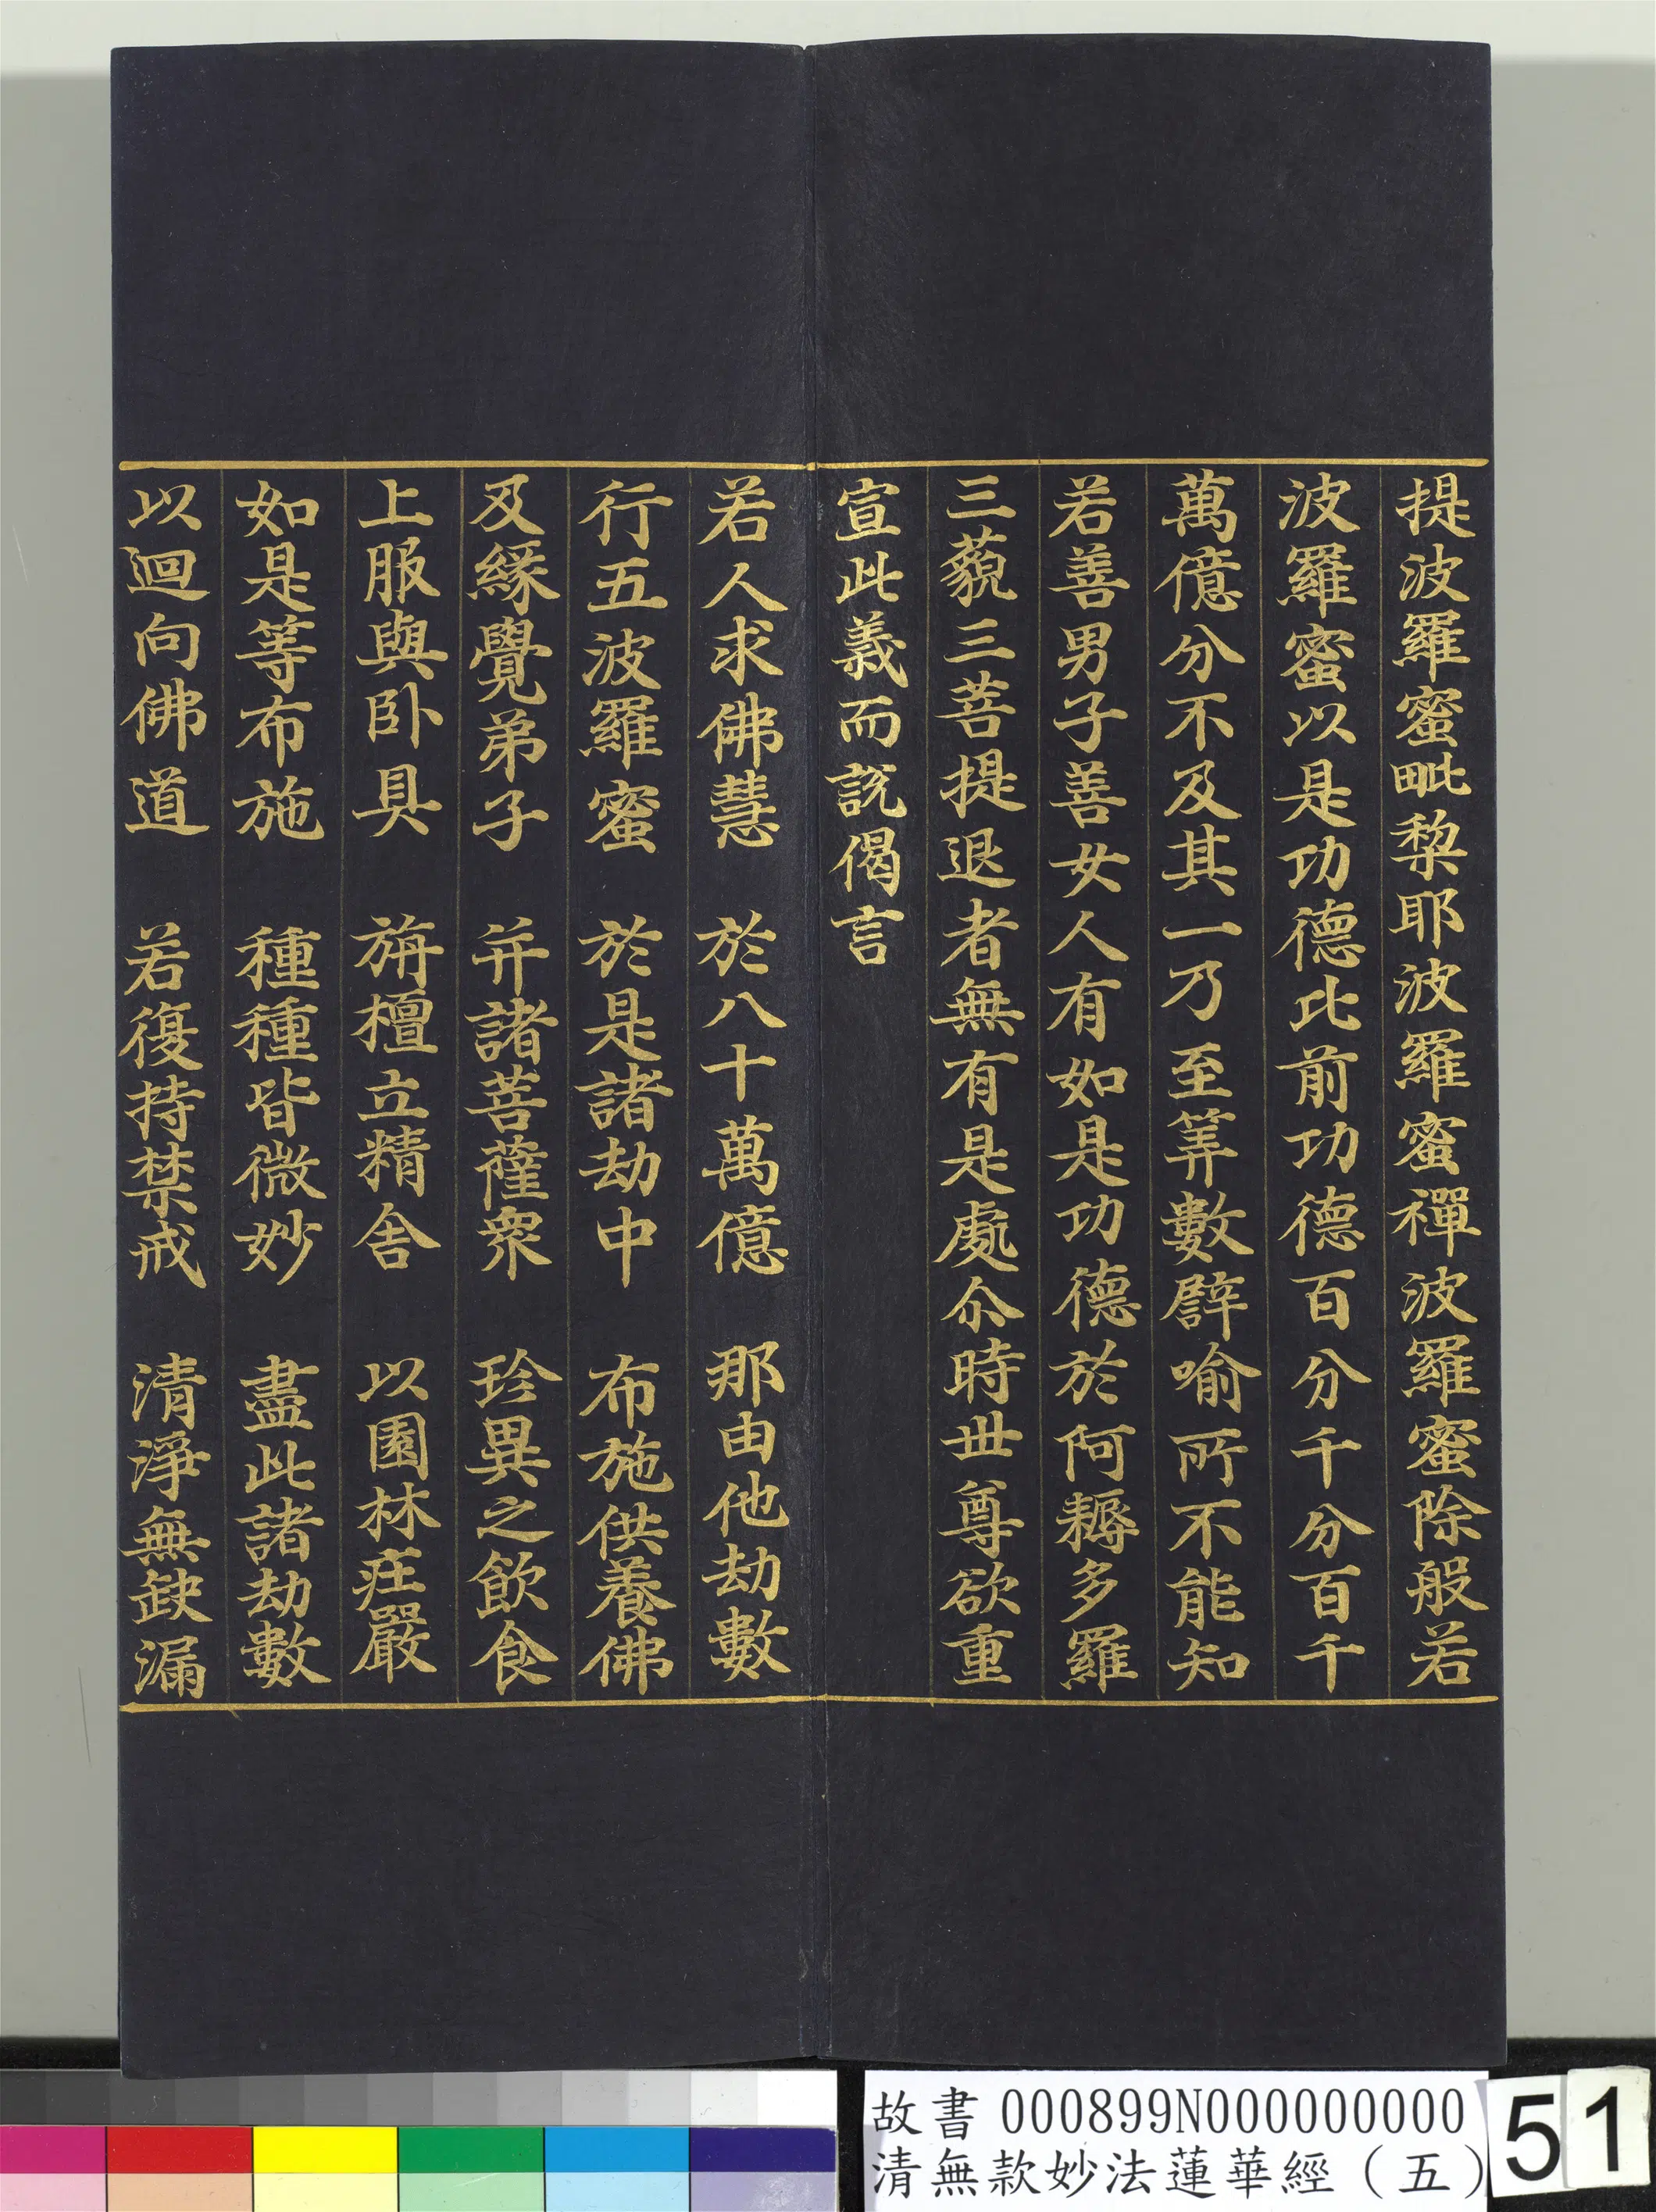 提波羅蜜毗棃耶波羅蜜禪波羅蜜除般若
波羅蜜以是功德比前功德百分千分百千
萬億分不及其一乃至筭數譬喻所不能知
若善男子善女人有如是功德於阿耨多羅
三藐三菩提退者無有是處尒時世尊欲重
宣此義而說偈言
若人求佛慧　於八十萬億　那由他劫數
行五波羅蜜　於是諸劫中　布施供養佛
及緣覺弟子　并諸菩薩衆　珍異之飲食
上服與卧具　旃檀立精舍　以園林莊嚴
如是等布施　種種皆微妙　盡此諸劫數
以迴向佛道　若復持禁戒　清淨無缺漏
故書 000899N000000000
清無款妙法蓮華經（五）
51